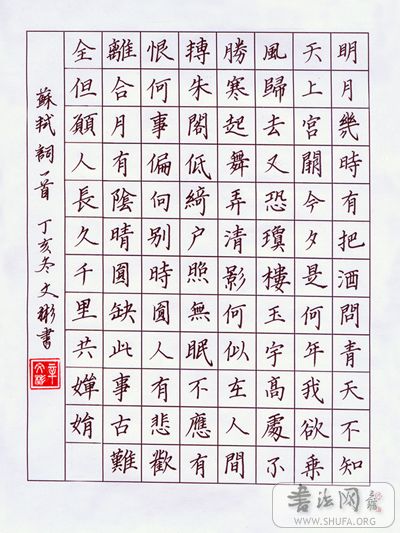 明月幾時有把酒問青天不知
天上宮闕今夕是何年我欲乘
風歸去又恐瓊樓玉宇高處不
勝寒起舞弄清影何似在人間
摶朱閣低綺户照無眠不應有
恨何事偏向別時圓人有悲歡
離合月有陰晴圓缺此事古難
全但願人長久千里共嬋娟
蘇軾詞一首 丁亥冬文彬書
書法网
WWW.SHUFA.ORG